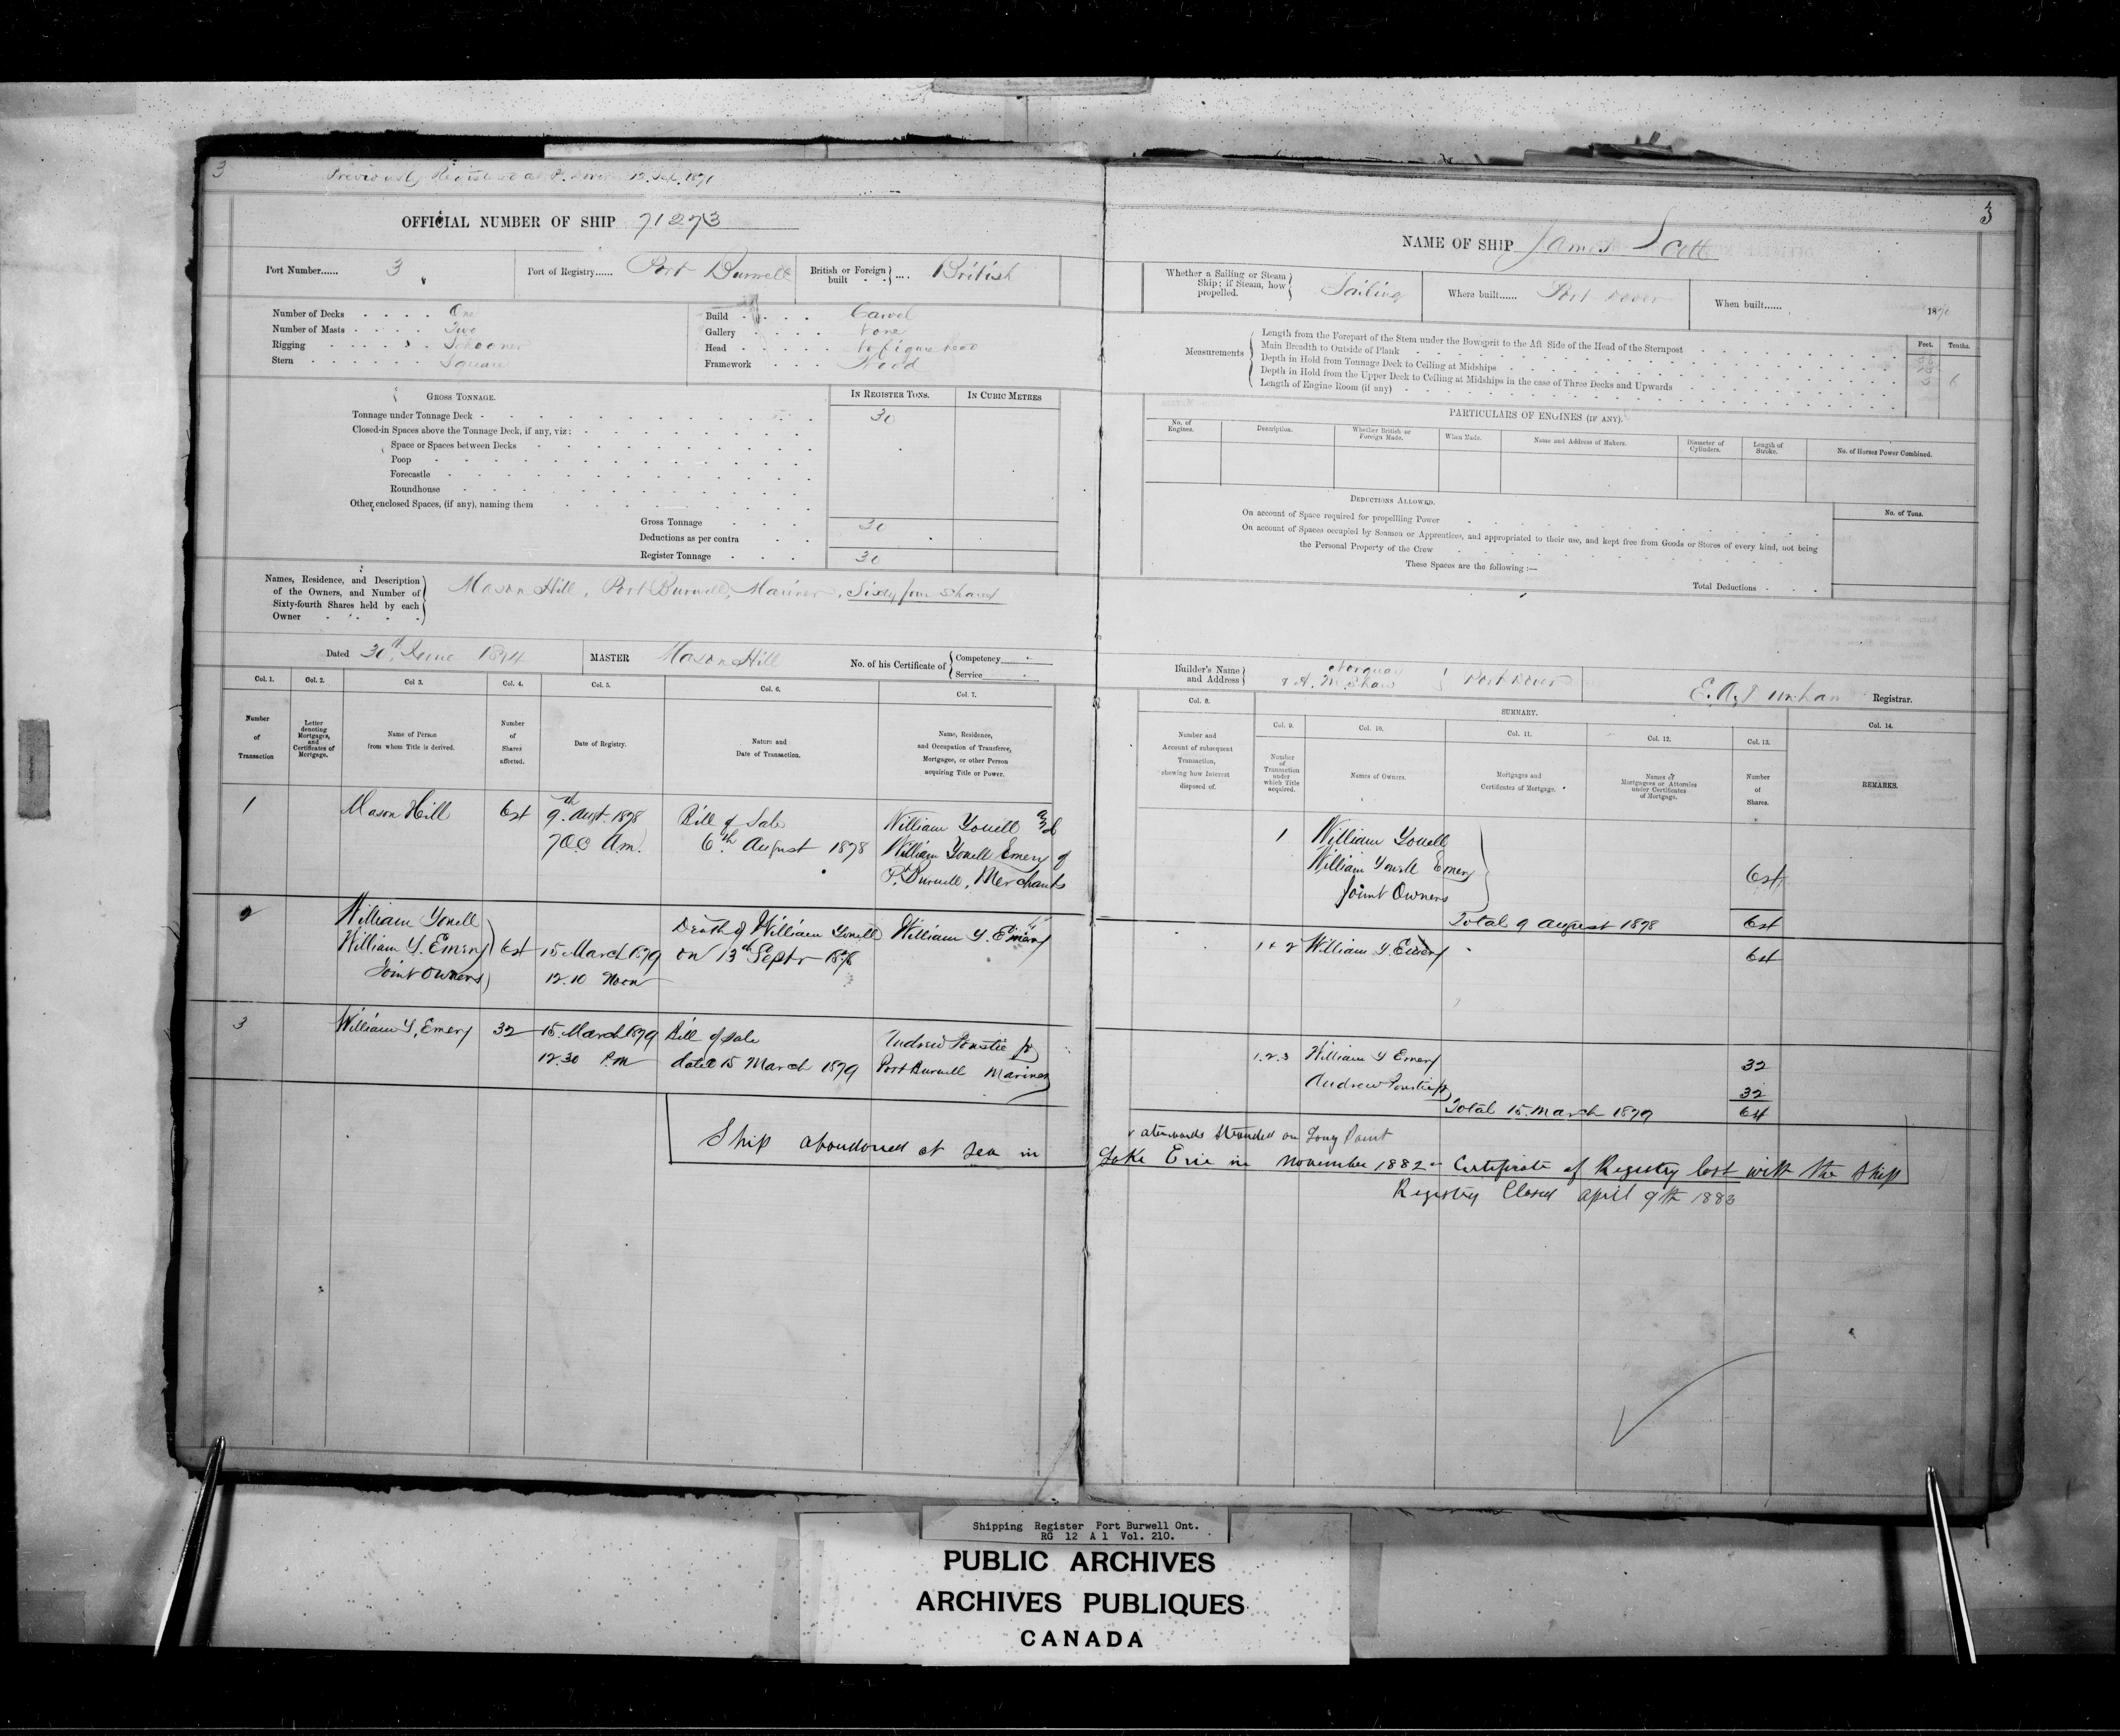 3
Previously Registered at P. Dover 12. 1871
OFFICIAL NUMBER OF SHIP 71273
Port Number...... 3
Port of Registry...... Port Burwell
British or Foreign built } .... British
Number of Decks . . . . One
Number of Masts . . . . Two
Rigging . . . . Schooner
Stern . . . . . . Square
Build . . . . Carvel
Gallery . . . . None
Head . . . . No figure head
Framework . . . Wood
GROSS TONNAGE.
IN REGISTER TONS.
IN CUBIC METRES
Tonnage under Tonnage Deck 30
Closed-in Spaces above the Tonnage Deck, if any, viz:
Space or Spaces between Decks
Poop
Forecastle
Roundhouse
Other enclosed Spaces, (if any), naming them
Gross Tonnage 30
Deductions as per contra
Register Tonnage 30
Names, Residence, and Description
of the Owners, and Number of
Sixty-fourth Shares held by each
Owner
Mason Hill, Port Burwell, Mariner, Sixty four Shares
Dated 30th June 1874
MASTER Mason Hill
No. of his Certificate of { Competency
Service
Col. 1. Col. 2. Col 3. Col. 4. Col. 5. Col. 6. Col. 7.
Number
of
Transaction
Letter
denoting
Mortgages,
and
Certificates of
Mortgage.
Name of Person
from whom Title is derived.
Number
of
Shares
affected.
Date of Registry.
Nature and
Date of Transaction.
Name, Residence,
and Occupation of Transferee,
Mortgagee, or other Person
acquiring Title or Power.
1 Mason Hill 64 9th Augt. 1878 Bill of Sale William Youell and
7.00 A.m. 6th August 1878 William Youell Emery of
P. Burwell, Merchants
2 William Youell Death of William Youell William Y. Emery
William Y. Emery 64 15 March 1879 on 13th Septr 1878
Joint Owners 12.10 Noon
3 William Y. Emery 32 15 March 1879 Bill of Sale Andrew Jr
12.30 P.M dated 15 March 1879 Port Burwell Mariner
Ship abandoned at sea in
3
NAME OF SHIP James Scott
Whether a Sailing or Steam
Ship; if Steam, how
propelled.
Sailing
Where built...... Port Dover
When built...... 1870
Measurements
Length from the Forepart of the Stem under the Bowsprit to the Aft Side of the Head of the Sternpost
Main Breadth to Outside of Plank
Depth in Hold from Tonnage Deck to Ceiling at Midships
Depth in Hold from the Upper Deck to Ceiling at Midships in the case of Three Decks and Upwards
Length of Engine Room (if any)
Feet. Tenths.
PARTICULARS OF ENGINES (IF ANY).
No. of
Engines.
Description.
Whether British or
Foreign Made.
When Made.
Name and Address of Makers.
Diameter of
Cylinders.
Length of
Stroke.
No. of Horses Power Combined.
DEDUCTIONS ALLOWED.
No. of Tons.
On account of Space required for propellling Power
On account of Spaces occupied by Seamen or Apprentices, and appropriated to their use, and kept free from Goods or Stores of every kind, not being
the Personal Property of the Crew
These Spaces are the following :—
Total Deductions
Builder's Name
and Address
& A. McShaw
Port Dover
Registrar.
Col. 8.
SUMMARY.
Col. 9. Col. 10. Col. 11. Col. 12. Col. 13. Col. 14.
Number and
Account of subsequent
Transaction,
shewing how Interest
disposed of.
Number
of
Transaction
under
which Title
acquired.
Names of Owners.
Mortgages and
Certificates of Mortgage.
Names of
Mortgagees or Attornies
under Certificates
of Mortgage.
Number
of
Shares.
REMARKS.
1 William Youell
William Youell Emery 64
Joint Owners
Total 9 August 1878 64
1 & 2 William Y. Emery 64
1.2.3 William Y Emery 32
Andrew Jr 32
Total 15 March 1879 64
& afterwards stranded on Long Point
Lake Erie in November 1882 - Certificate of Registry lost with the ship
Registry Closed April 9th 1883
Shipping Register Port Burwell Ont.
RG 12 A 1 Vol. 210.
PUBLIC ARCHIVES
ARCHIVES PUBLIQUES
CANADA